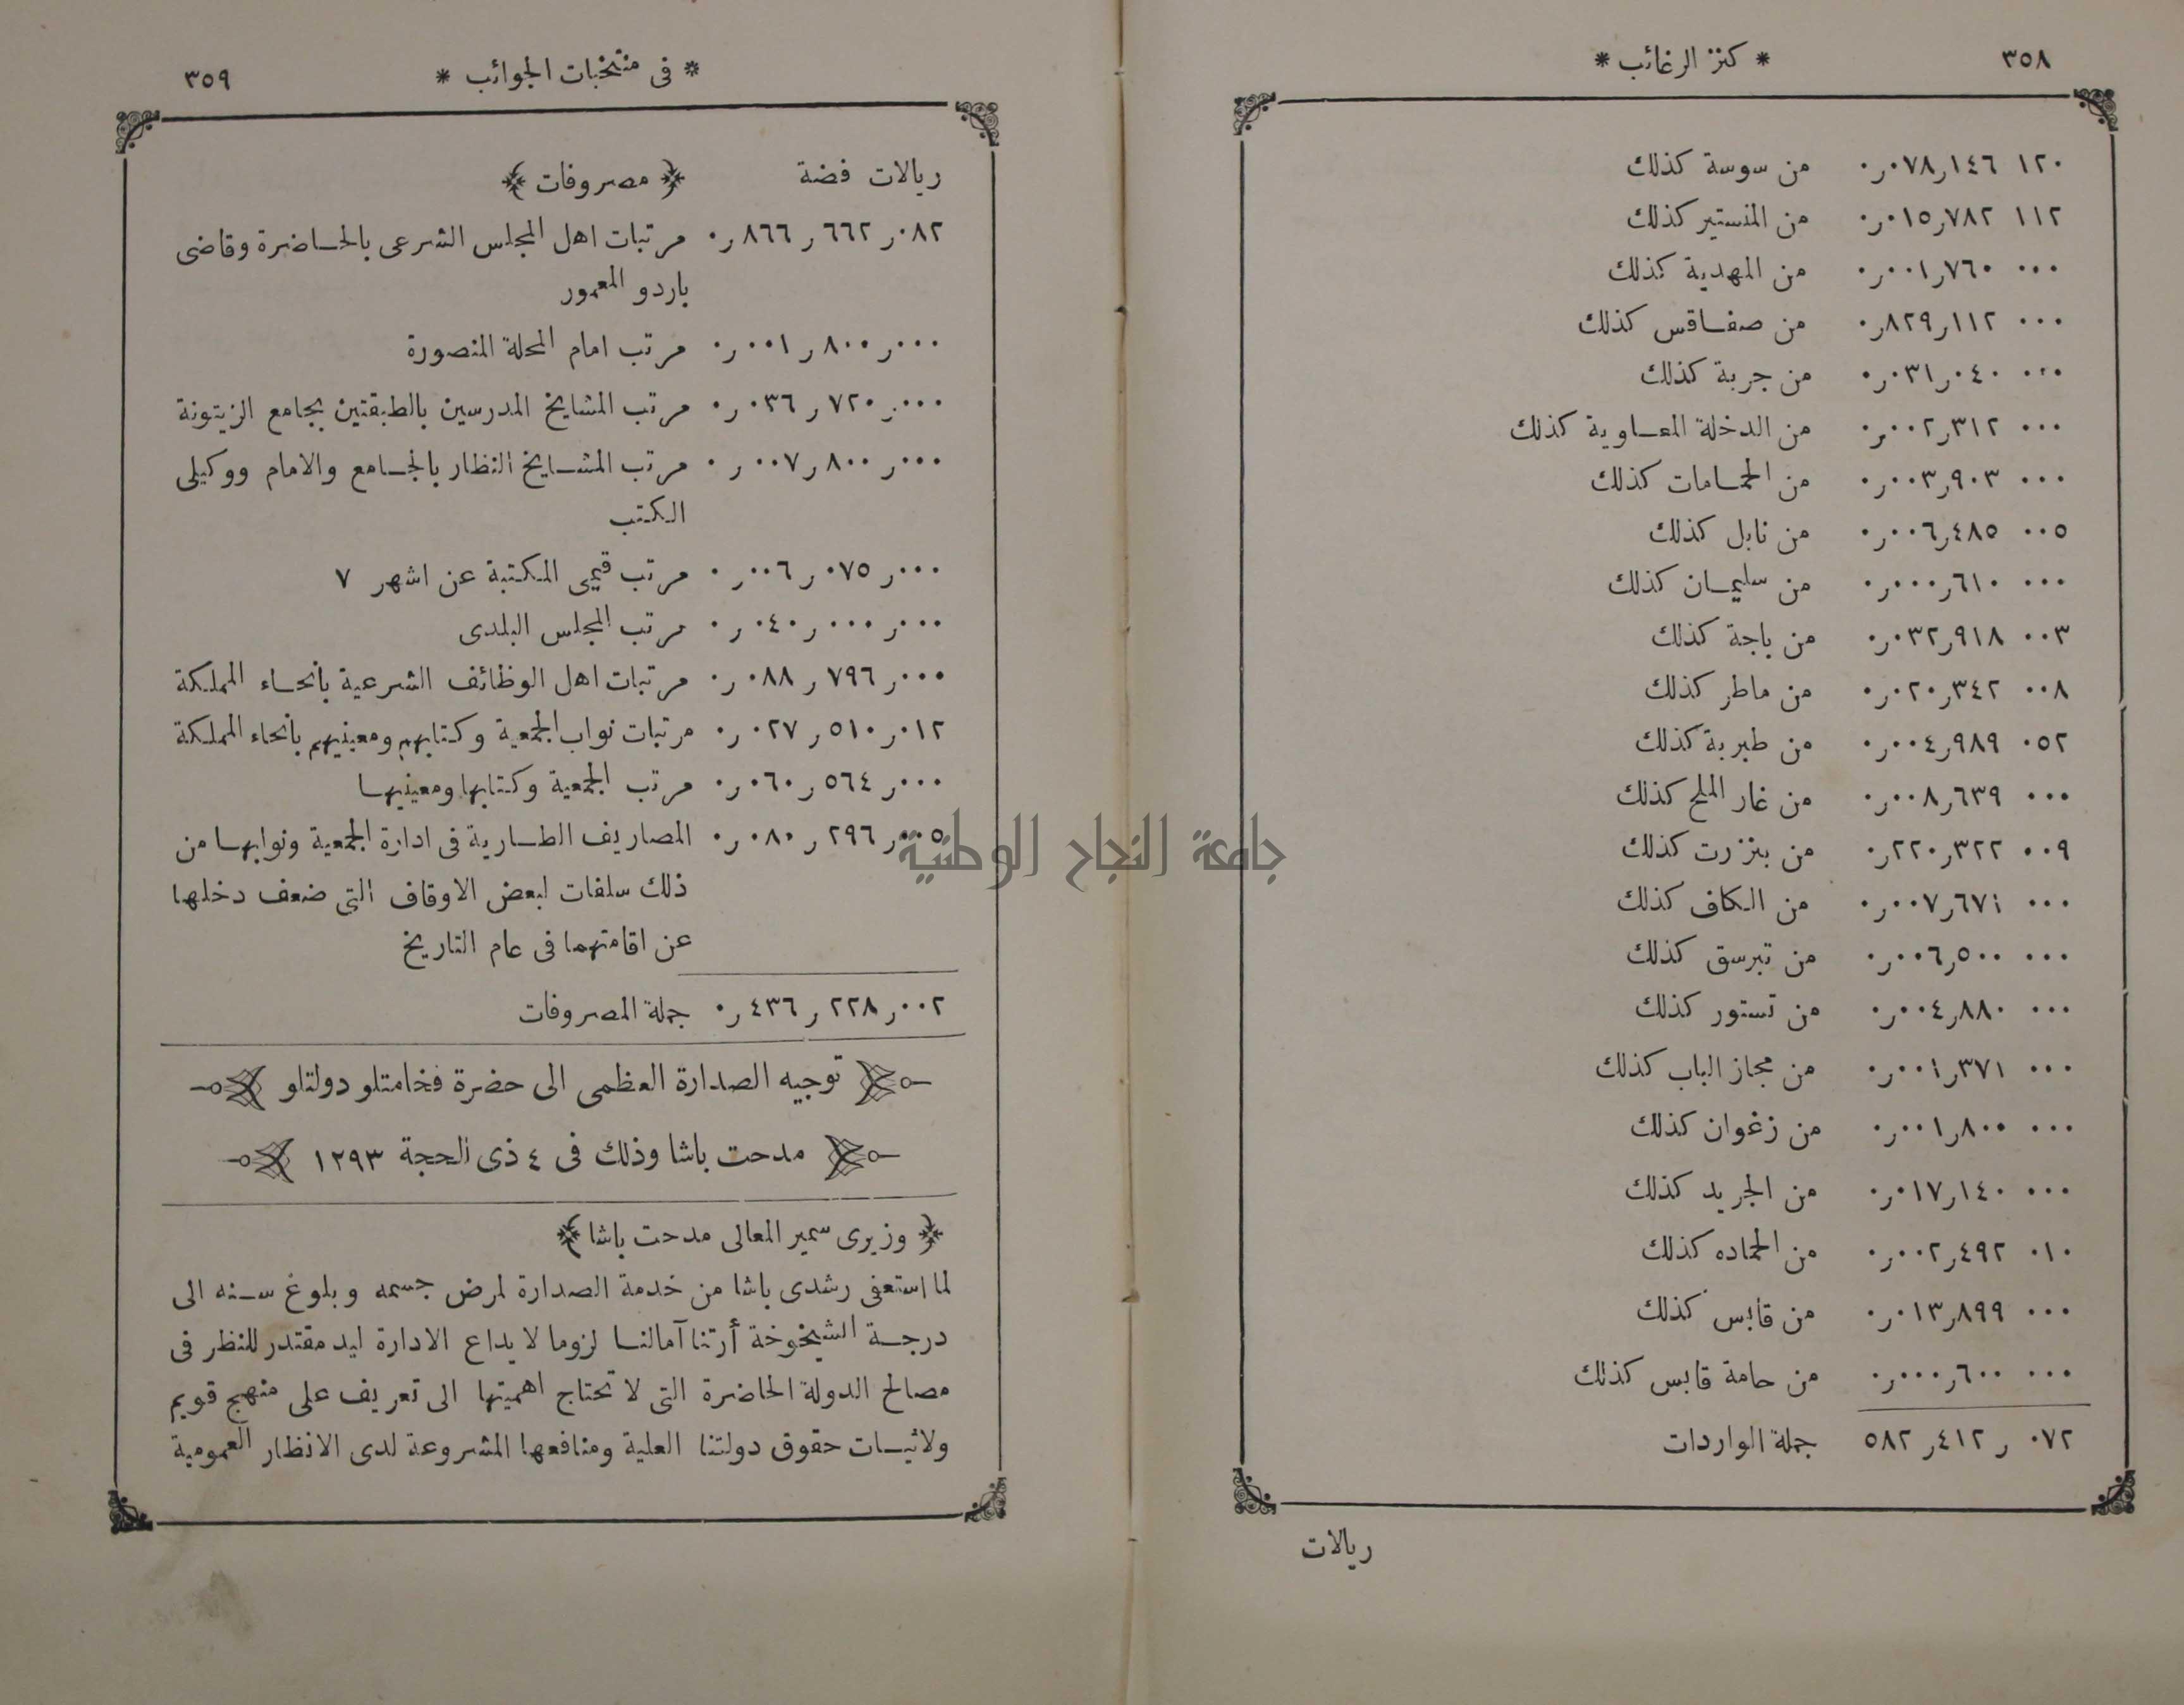 ٣٥٨ * كنز الرغائب *
١٢٠ ٠٧٨ر١٤٦ر٠ من سوسة كذلك
١١٢ ٠١٥ر٧٨٢ر٠ من المنستير كذلك
٠٠٠ ٠٠١ر٧٦٠ر٠ من المهدية كذلك
٠٠٠ ٨٢٩ر١١٢ر٠ من صفاقس كذلك
٠٠٠ ٠٣١ر٠٤٠ر٠ من جربة كذلك
٠٠٠ ٠٠٢ر٣١٢ر٠ من الدخلة المعاوية كذلك
٠٠٠ ٠٠٣ر٩٠٣ر٠ من الحمامات كذلك
٠٠٥ ٠٠٦ر٤٨٥ر٠ من نابل كذلك
٠٠٠ ٠٠٠ر٦١٠ر٠ من سليمان كذلك
٠٠٣ ٠٣٢ر٩١٨ر٠ من باجة كذلك
٠٠٨ ٠٢٠ر٣٤٢ر٠ من ماطر كذلك
٠٥٢ ٠٠٤ر٩٨٩ر٠ من طبربة كذلك
٠٠٠ ٠٠٨ر٦٣٩ر٠ من غار الملح كذلك
٠٠٩ ٢٢٠ر٣٢٢ر٠ من بنزرت كذلك
٠٠٠ ٠٠٧ر٦٧١ر٠ من الكاف كذلك
٠٠٠ ٠٠٦ر٥٠٠ر٠ من تبرسق كذلك
٠٠٠ ٠٠٤ر٨٨٠ر٠ من تستور كذلك
٠٠٠ ٠٠١ر٣٧١ر٠ من مجاز الباب كذلك
٠٠٠ ٠٠١ر٨٠٠ر٠ من زغوان كذلك
٠٠٠ ٠١٧ر١٤٠ر٠ من الجريد كذلك
٠١٠ ٠٠٢ر٤٩٢ر٠ من الحماده كذلك
٠٠٠ ٠١٣ر٨٩٩ر٠ من قابس كذلك
٠٠٠ ٠٠٠ر٦٠٠ر٠ من حامة قابس كذلك
٠٧٢ ر ٤١٢ر ٥٨٢ جملة الواردات
ريالات
* فى منتخبات الجوائب * ٣٥٩
ريالات فضة ﴿ مصروفات ﴾
٠٨٢ر ٦٦٢ر ٨٦٦ر٠ مرتبات اهل المجلس الشرعى بالحاضرة وقاضى
باردو المعمور
٠٠٠ر ٨٠٠ر ٠٠١ر٠ مرتب امام المحلة المنصورة
٠٠٠ر ٧٢٠ر ٠٣٦ر٠ مرتب المشايخ المدرسين بالطبقتين بجامع الزيتونة
٠٠٠ر ٨٠٠ر ٠٠٧ر٠ مرتب المشايخ النظار بالجامع والامام ووكيلى
الكتب
٠٠٠ر ٠٧٥ر ٠٠٦ر٠ مرتب قيمى المكتبة عن اشهر ٧
٠٠٠ر ٠٠٠ر ٠٤٠ر٠ مرتب المجلس البلدى
٠٠٠ر ٧٩٦ر ٠٨٨ر٠ مرتبات اهل الوظائف الشرعية بانحاء المملكة
٠١٢ر ٥١٠ر ٠٢٧ر٠ مرتبات نواب الجمعية وكتابهم ومعينيهم بانحاء المملكة
٠٠٠ر ٥٦٤ر ٠٦٠ر٠ مرتب الجمعية وكتابها ومعينيها
٠٠٥ر ٢٩٦ر ٠٨٠ر٠ المصاريف الطارية فى ادارة الجمعية ونوابها من
ذلك سلفات لبعض الاوقاف التى ضعف دخلها
عن اقامتهما فى عام التاريخ
٠٠٢ر ٢٢٨ر ٤٣٦ر٠ جملة المصروفات
توجيه الصدارة العظمى الى حضرة فخامتلو دولتلو
مدحت باشا وذلك فى ٤ ذى الحجة ١٢٩٣
﴿ وزيرى سمير المعالى مدحت باشا ﴾
لما استعفى رشدى باشا من خدمة الصدارة لمرض جسمه وبلوغ سنه الى
درجة الشيخوخة أرتنا آمالنا لزوما لا يداع الادارة ليد مقتدر للنظر فى
مصالح الدولة الحاضرة التى لا تحتاج اهميتها الى تعريف على منهج قويم
ولاثبات حقوق دولتنا العلية ومنافعها المشروعة لدى الانظار العمومية
جامعة النجاح الوطنية